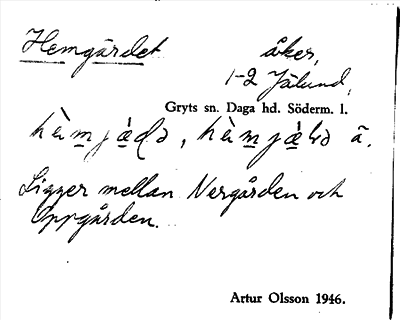 Hemgärdet åker,
1-2 Jälund,
Gryts sn. Daga hd. Söderm. l.
Ligger mellan Nergården och
Oppgården.
Artur Olsson 1946.